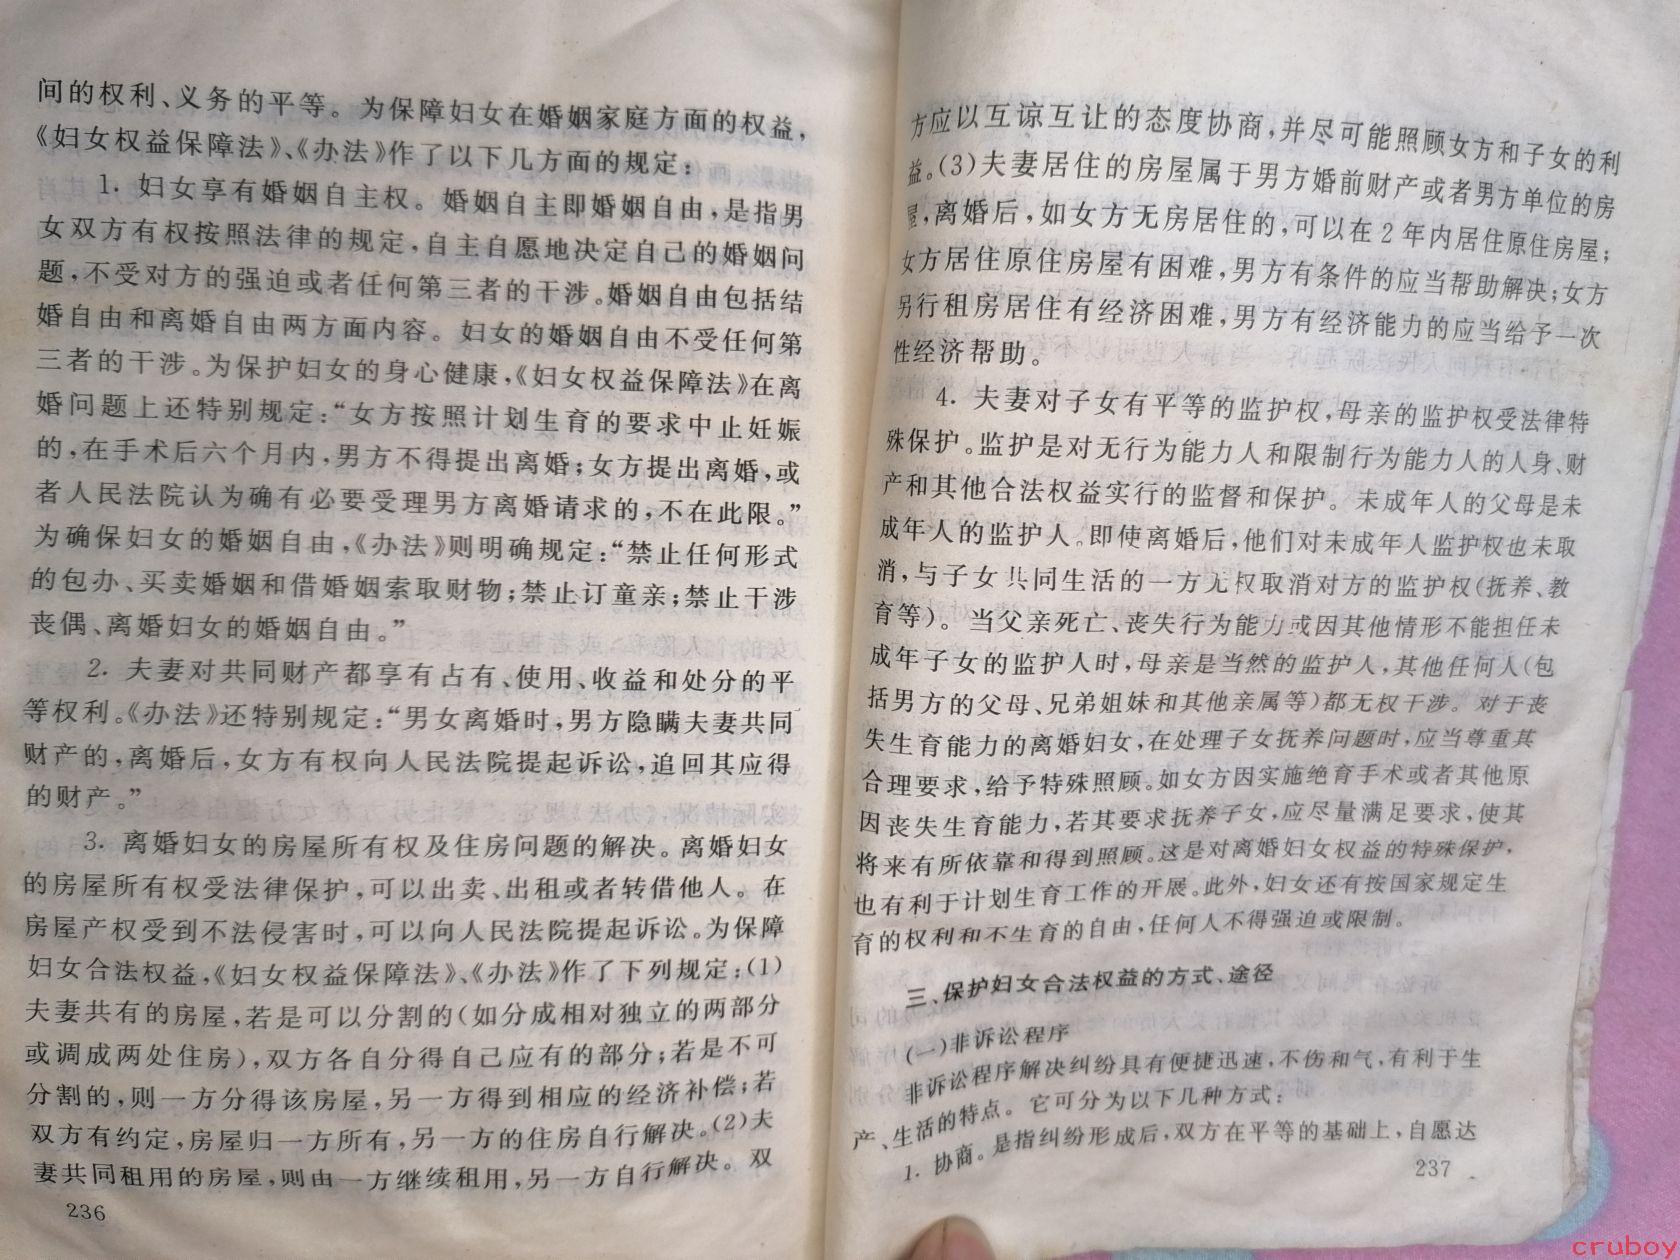 间的权利、义务的平等。为保障妇女在婚姻家庭方面的权益，
《妇女权益保障法》、《办法》作了以下几方面的规定：
1. 妇女享有婚姻自主权。婚姻自主即婚姻自由，是指男
女双方有权按照法律的规定，自主自愿地决定自己的婚姻问
题，不受对方的强迫或者任何第三者的干涉。婚姻自由包括结
婚自由和离婚自由两方面内容。妇女的婚姻自由不受任何第
三者的干涉。为保护妇女的身心健康，《妇女权益保障法》在离
婚问题上还特别规定：“女方按照计划生育的要求中止妊娠
的，在手术后六个月内，男方不得提出离婚；女方提出离婚，或
者人民法院认为确有必要受理男方离婚请求的，不在此限。”
为确保妇女的婚姻自由，《办法》则明确规定：“禁止任何形式
的包办、买卖婚姻和借婚姻索取财物；禁止订童亲；禁止干涉
丧偶、离婚妇女的婚姻自由。”
2. 夫妻对共同财产都享有占有、使用、收益和处分的平
等权利。《办法》还特别规定：“男女离婚时，男方隐瞒夫妻共同
财产的，离婚后，女方有权向人民法院提起诉讼，追回其应得
的财产。”
3. 离婚妇女的房屋所有权及住房问题的解决。离婚妇女
的房屋所有权受法律保护，可以出卖、出租或者转借他人。在
房屋产权受到不法侵害时，可以向人民法院提起诉讼。为保障
妇女合法权益，《妇女权益保障法》、《办法》作了下列规定：(1)
夫妻共有的房屋，若是可以分割的(如分成相对独立的两部分
或调成两处住房)，双方各自分得自己应有的部分；若是不可
分割的，则一方分得该房屋，另一方得到相应的经济补偿；若
双方有约定，房屋归一方所有，另一方的住房自行解决。(2)夫
妻共同租用的房屋，则由一方继续租用，另一方自行解决。双
236
方应以互谅互让的态度协商，并尽可能照顾女方和子女的利
益。(3)夫妻居住的房屋属于男方婚前财产或者男方单位的房
屋，离婚后，如女方无房居住的，可以在2年内居住原住房屋；
女方居住原住房屋有困难，男方有条件的应当帮助解决；女方
另行租房居住有经济困难，男方有经济能力的应当给予一次
性经济帮助。
4. 夫妻对子女有平等的监护权，母亲的监护权受法律特
殊保护。监护是对无行为能力人和限制行为能力人的人身、财
产和其他合法权益实行的监督和保护。未成年人的父母是未
成年人的监护人。即使离婚后，他们对未成年人监护权也未取
消，与子女共同生活的一方无权取消对方的监护权(抚养、教
育等)。当父亲死亡、丧失行为能力或因其他情形不能担任未
成年子女的监护人时，母亲是当然的监护人，其他任何人(包
括男方的父母、兄弟姐妹和其他亲属等)都无权干涉。对于丧
失生育能力的离婚妇女，在处理子女抚养问题时，应当尊重其
合理要求，给予特殊照顾。如女方因实施绝育手术或者其他原
因丧失生育能力，若其要求抚养子女，应尽量满足要求，使其
将来有所依靠和得到照顾。这是对离婚妇女权益的特殊保护，
也有利于计划生育工作的开展。此外，妇女还有按国家规定生
育的权利和不生育的自由，任何人不得强迫或限制。
三、保护妇女合法权益的方式、途径
(一)非诉讼程序
非诉讼程序解决纠纷具有便捷迅速，不伤和气，有利于生
产、生活的特点。它可分为以下几种方式：
1. 协商。是指纠纷形成后，双方在平等的基础上，自愿达
237
cruboy